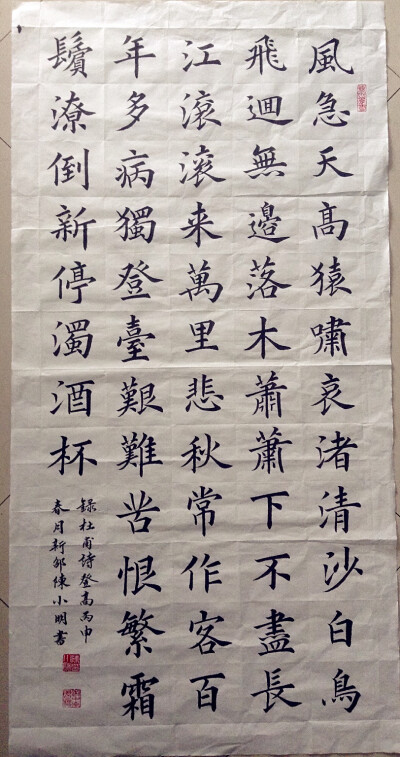 風急天高猿嘯哀渚清沙白鳥
飛迴無邊落木蕭蕭下不盡長
江滾滾来萬里悲秋常作客百
年多病獨登臺艱難苦恨繁霜
鬢潦倒新停濁酒杯
錄杜甫詩登高丙申
春月新邹陳小明書